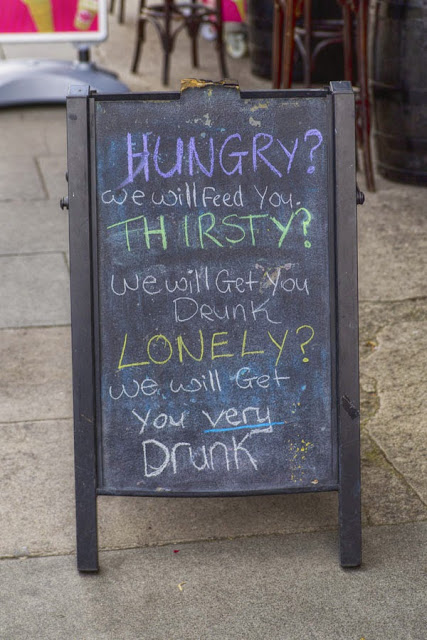 HUNGRY?
we will Feed You.
THIRSTY?
we will Get You
Drunk
LONELY?
we will Get
You very
Drunk